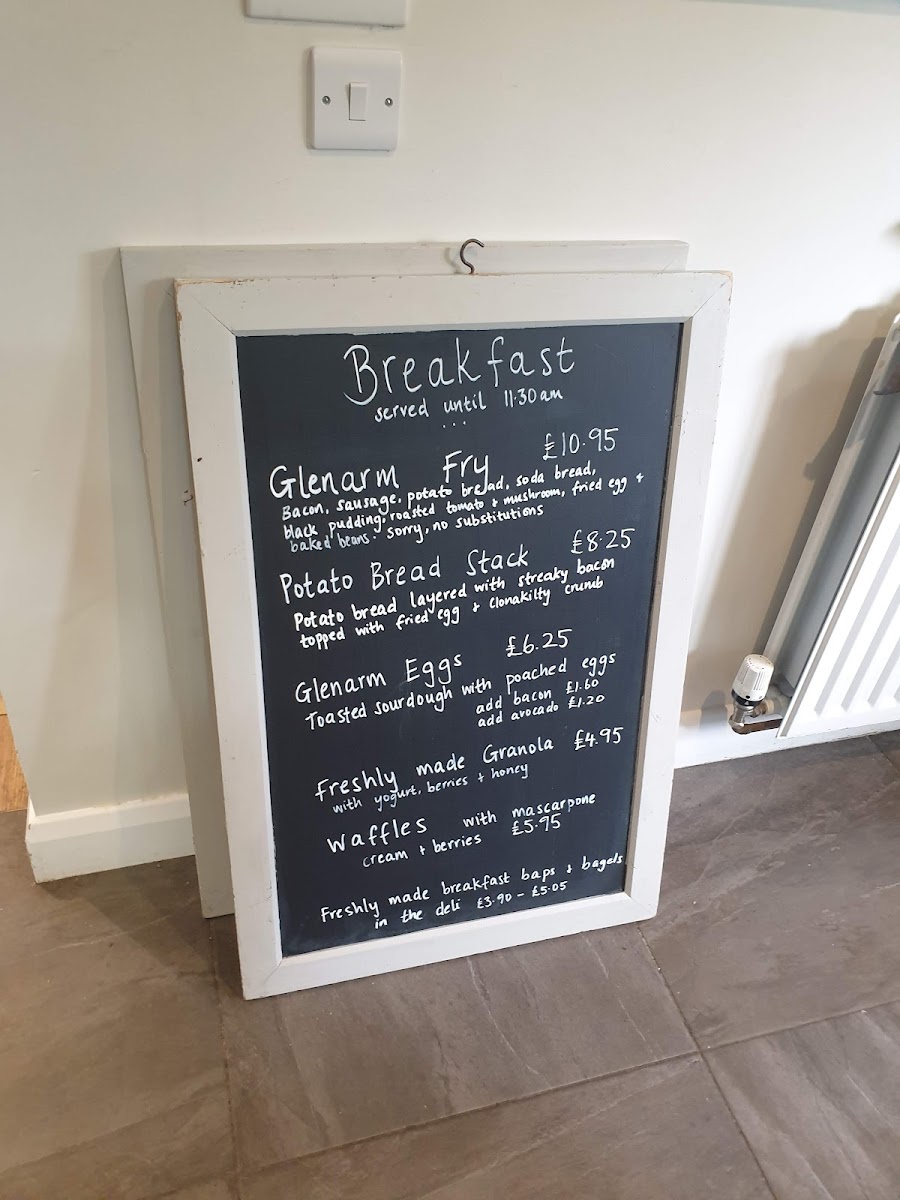 Breakfast
served until 11.30am
...
Glenarm Fry £10.95
Bacon, sausage, potato bread, soda bread,
black pudding, roasted tomato + mushroom, fried egg +
baked beans. sorry, no substitutions
Potato Bread Stack £8.25
Potato bread layered with streaky bacon
topped with fried egg + Clonakilty crumb
Glenarm Eggs £6.25
Toasted sourdough with poached eggs
add bacon £1.60
add avocado £1.20
Freshly made Granola £4.95
with yogurt, berries + honey
Waffles with mascarpone
cream + berries £5.95
Freshly made breakfast baps + bagels
in the deli £3.90 - £5.05